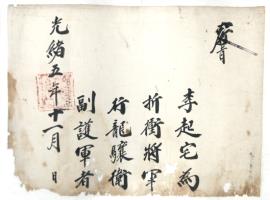 李起宅為
折衝將軍
行龍驤衛
副護軍者
光緒五年十一月 日